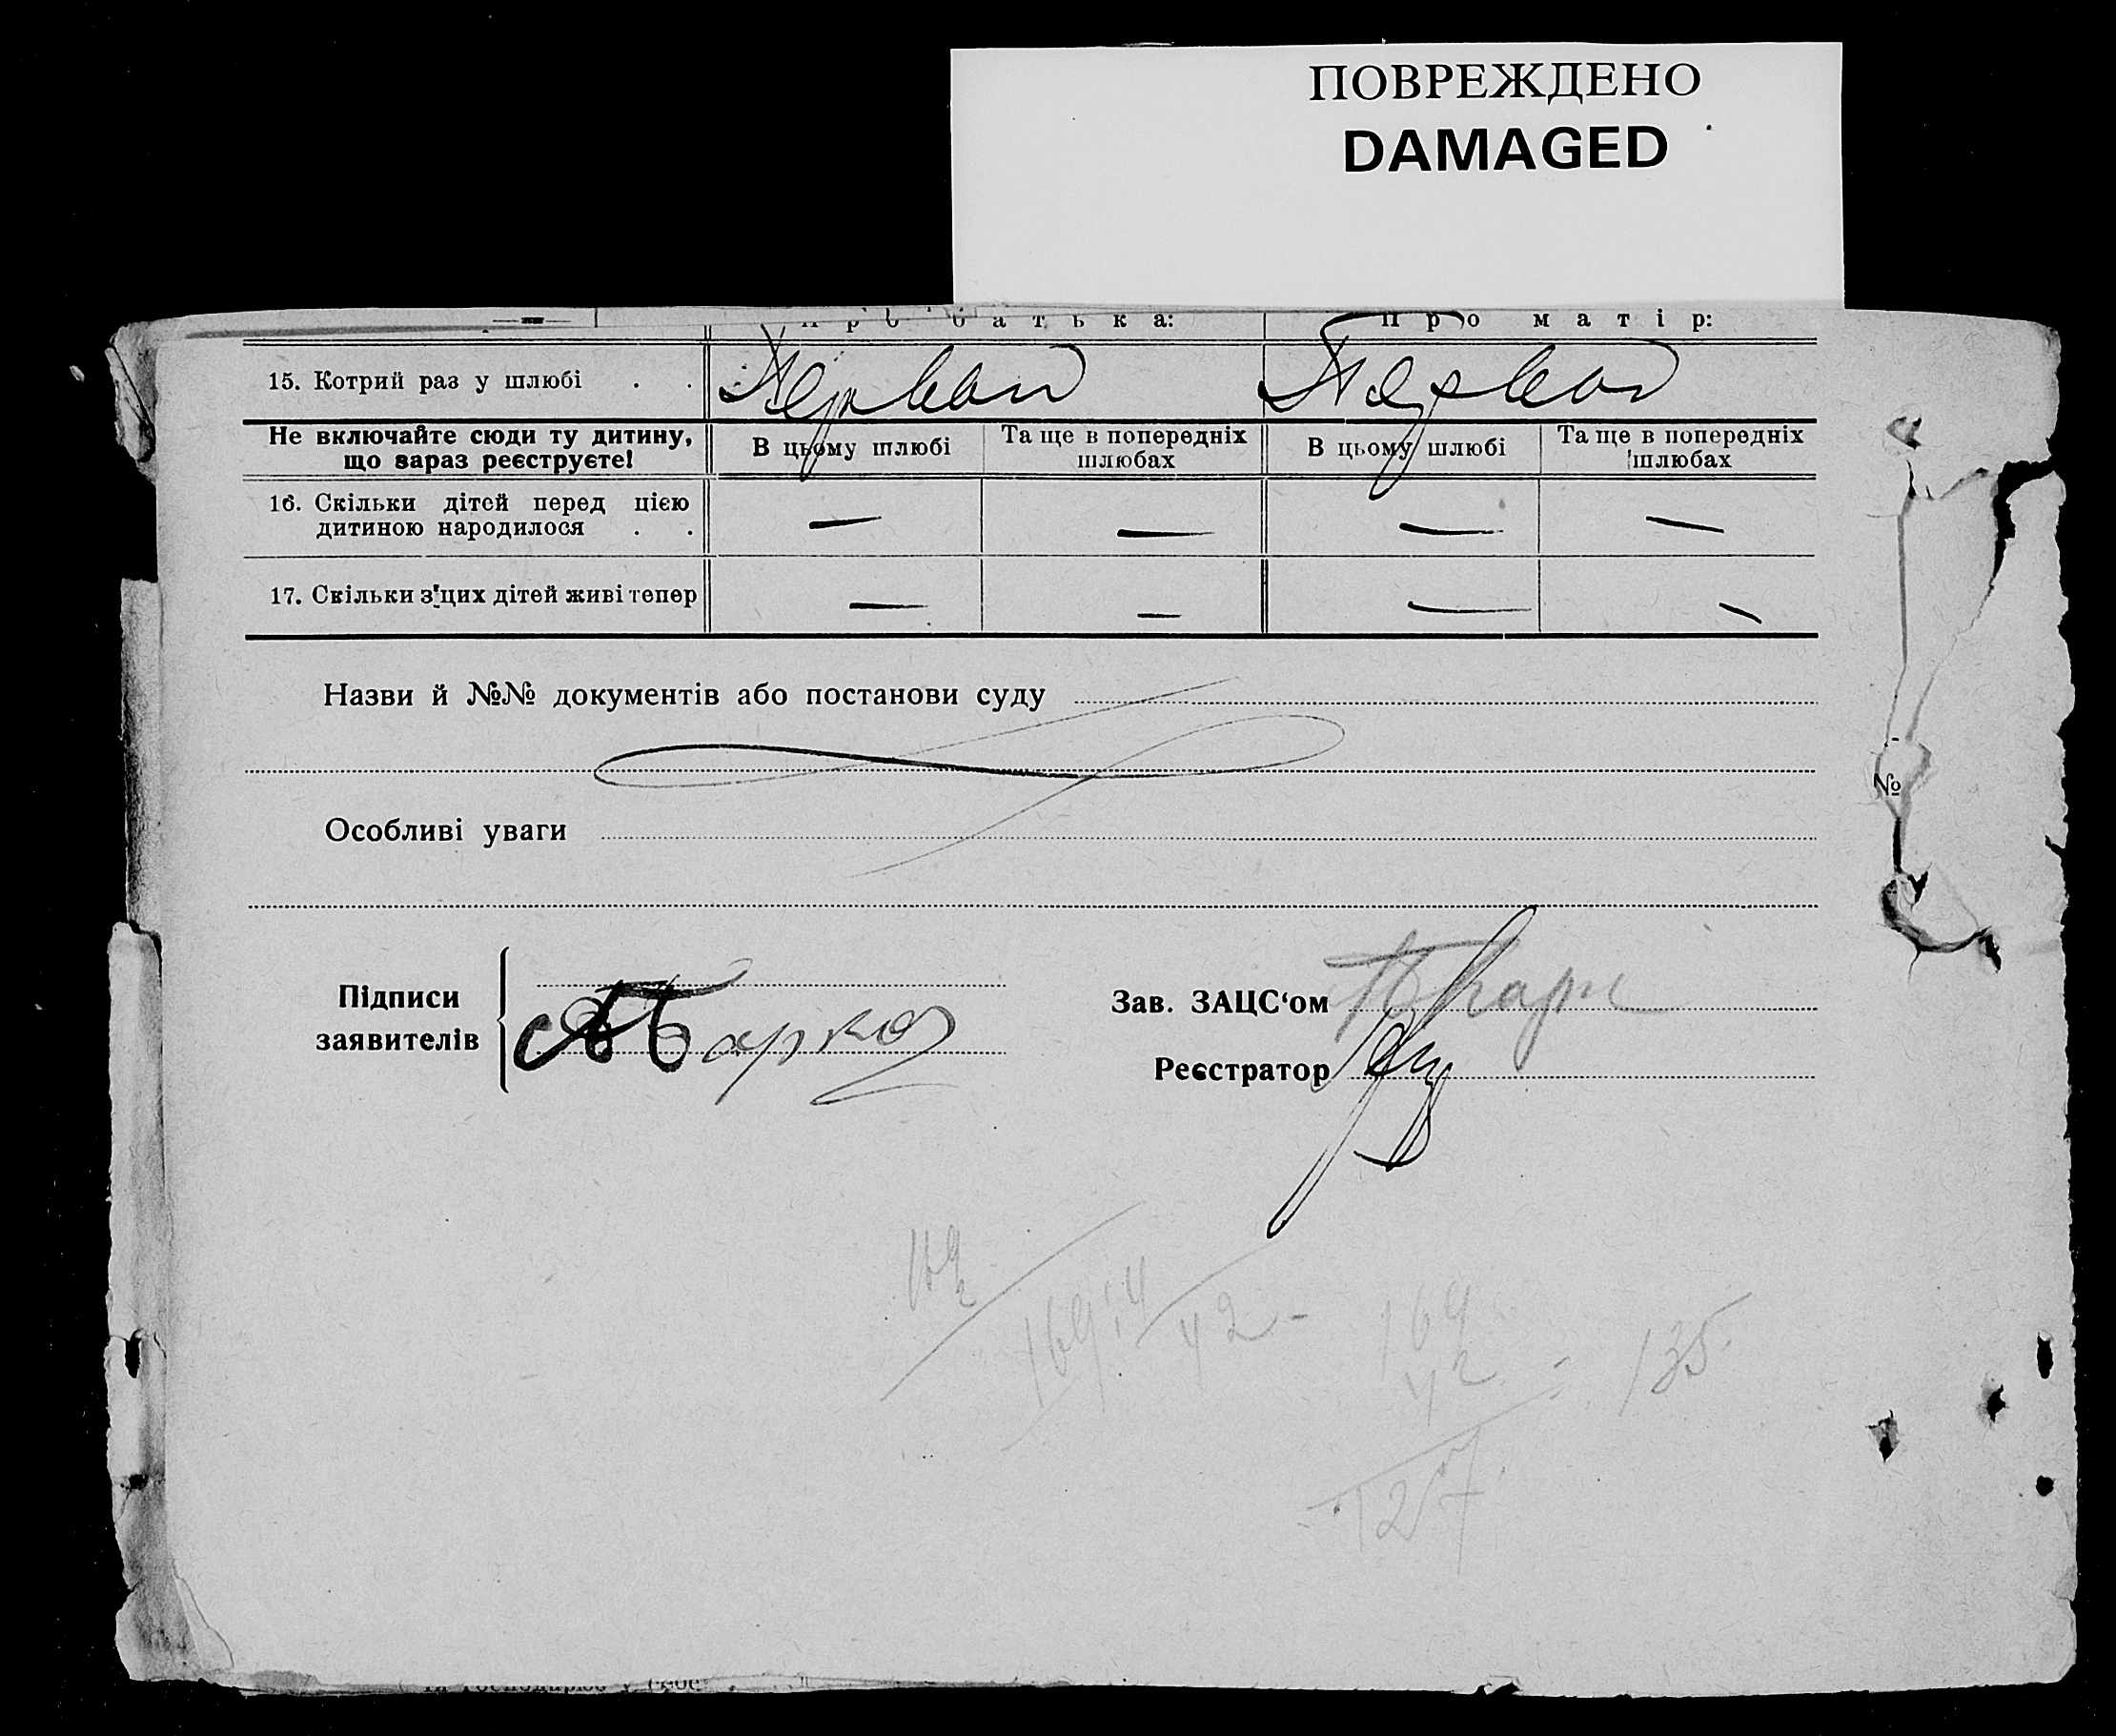 ПОВРЕЖДЕНО
DAMAGED
Про батька: Про матір:
15. Котрий раз у шлюбі . . Первой Первой
Не включайте сюди ту дитину, що зараз реєструєте! В цьому шлюбі Та ще в попередніх шлюбах В цьому шлюбі Та ще в попередніх шлюбах
16. Скільки дітей перед цією дитиною народилося . . — — — —
17. Скільки з цих дітей живі тепер — — — —
Назви й №№ документів або постанови суду
№
Особливі уваги
Підписи заявителів
Зав. ЗАЦС‘ом
Реєстратор
42 -
169
42
135
127